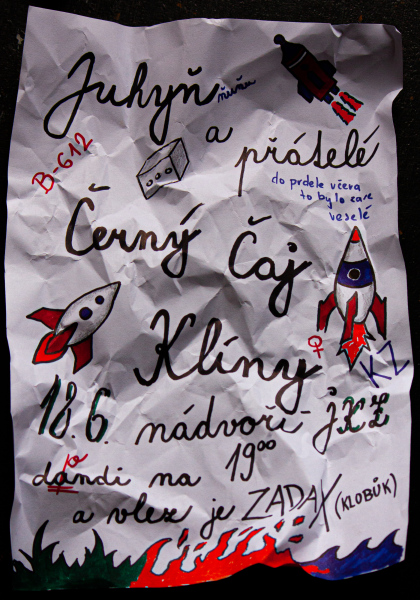 Juhyň
ňuňu
a
B-612
přátelé
do prdele včera
to bylo zase
veselé
Černý Čaj
Klíny
♀
KZ
18.6. nádvoří jKZ
jo
dandi na 19⁰⁰
a vlez je ZADAX (KLOBÚK)